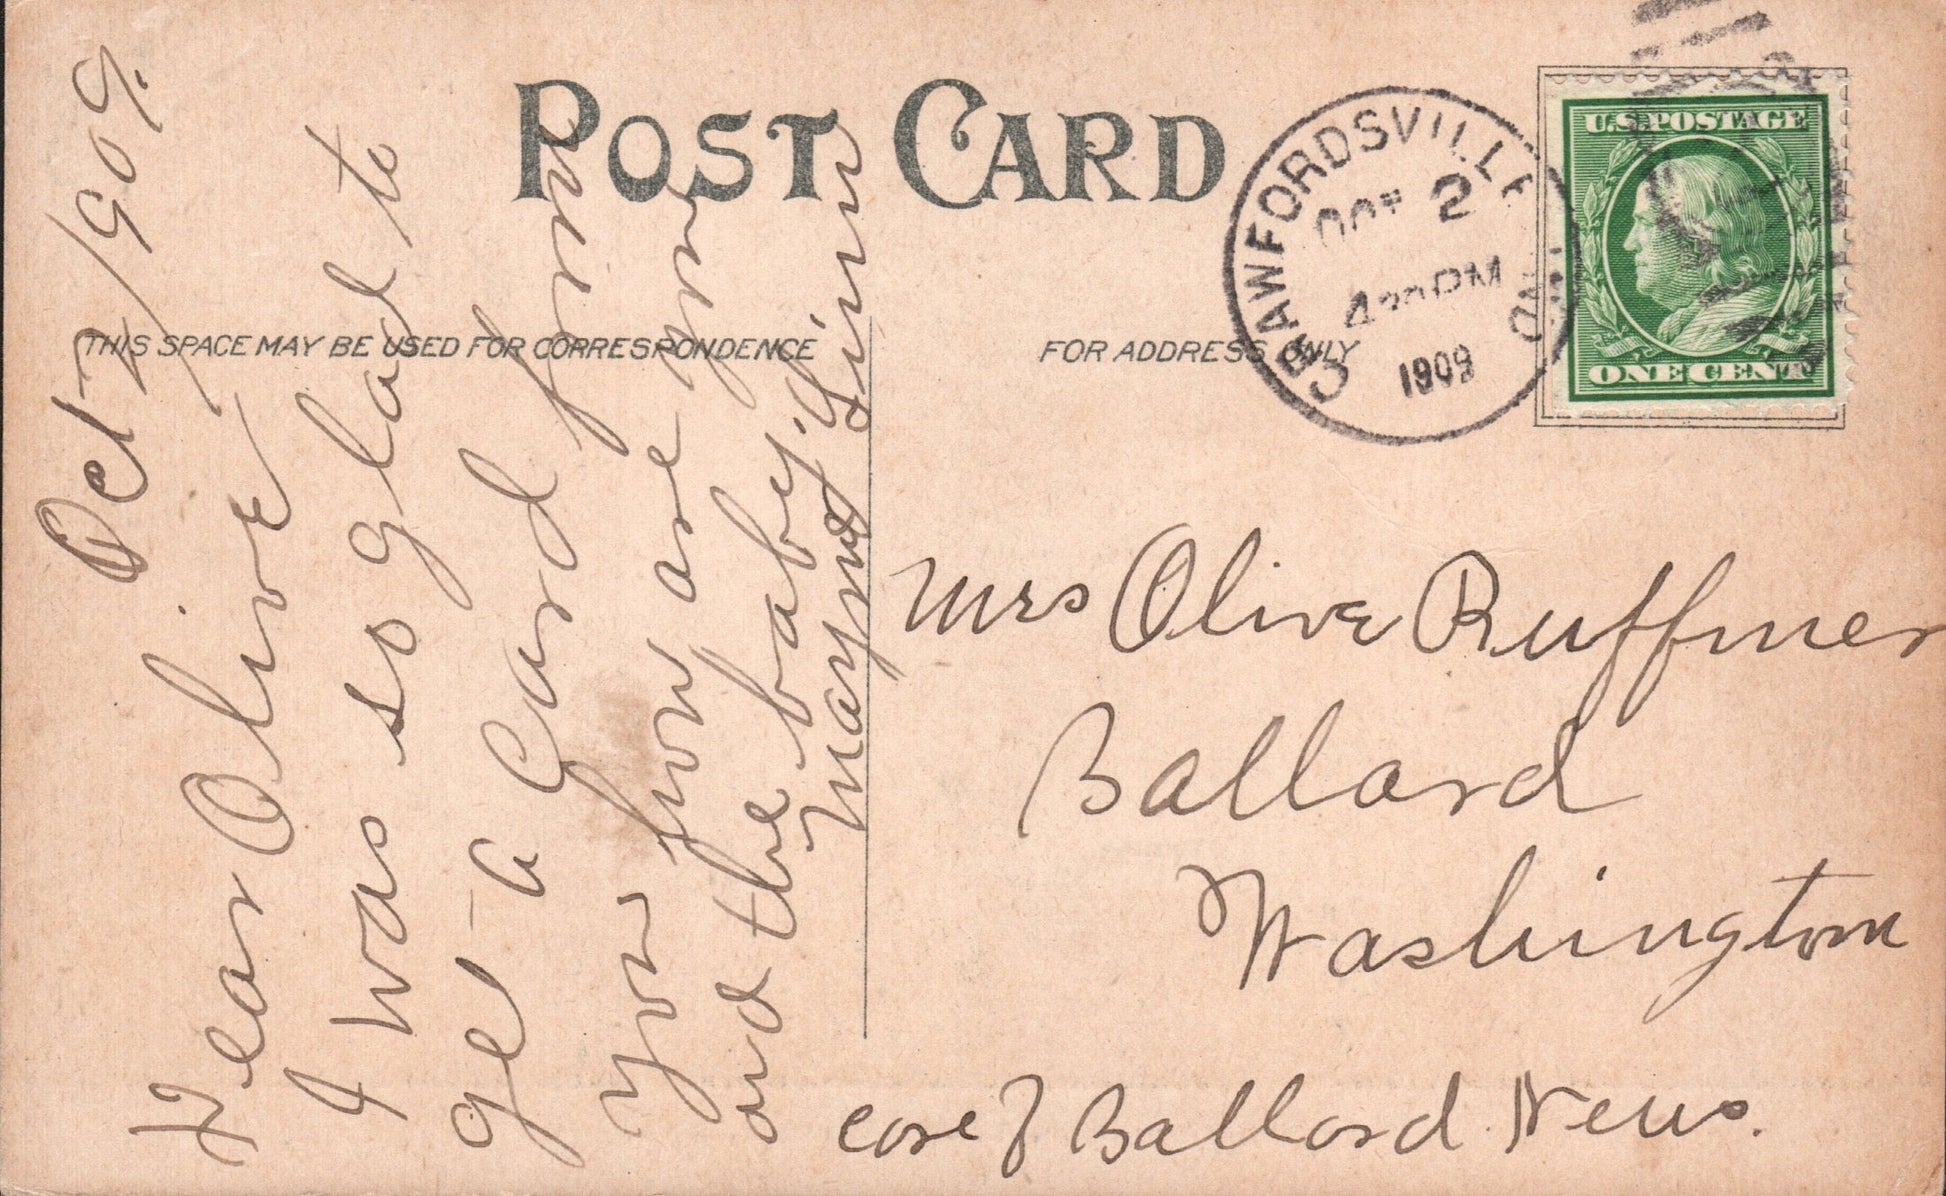 POST CARD
THIS SPACE MAY BE USED FOR CORRESPONDENCE
FOR ADDRESS ONLY
CRAWFORDSVILLE IND.
OCT 2
430 PM
1909
U.S. POSTAGE
ONE CENT
Oct 2/1909.
Dear Olive
I was so glad to
get a Card from
You how are you
and the baby.
Mayme Linn
Mrs Olive Ruffner
Ballard
Washington
care of Ballard News.